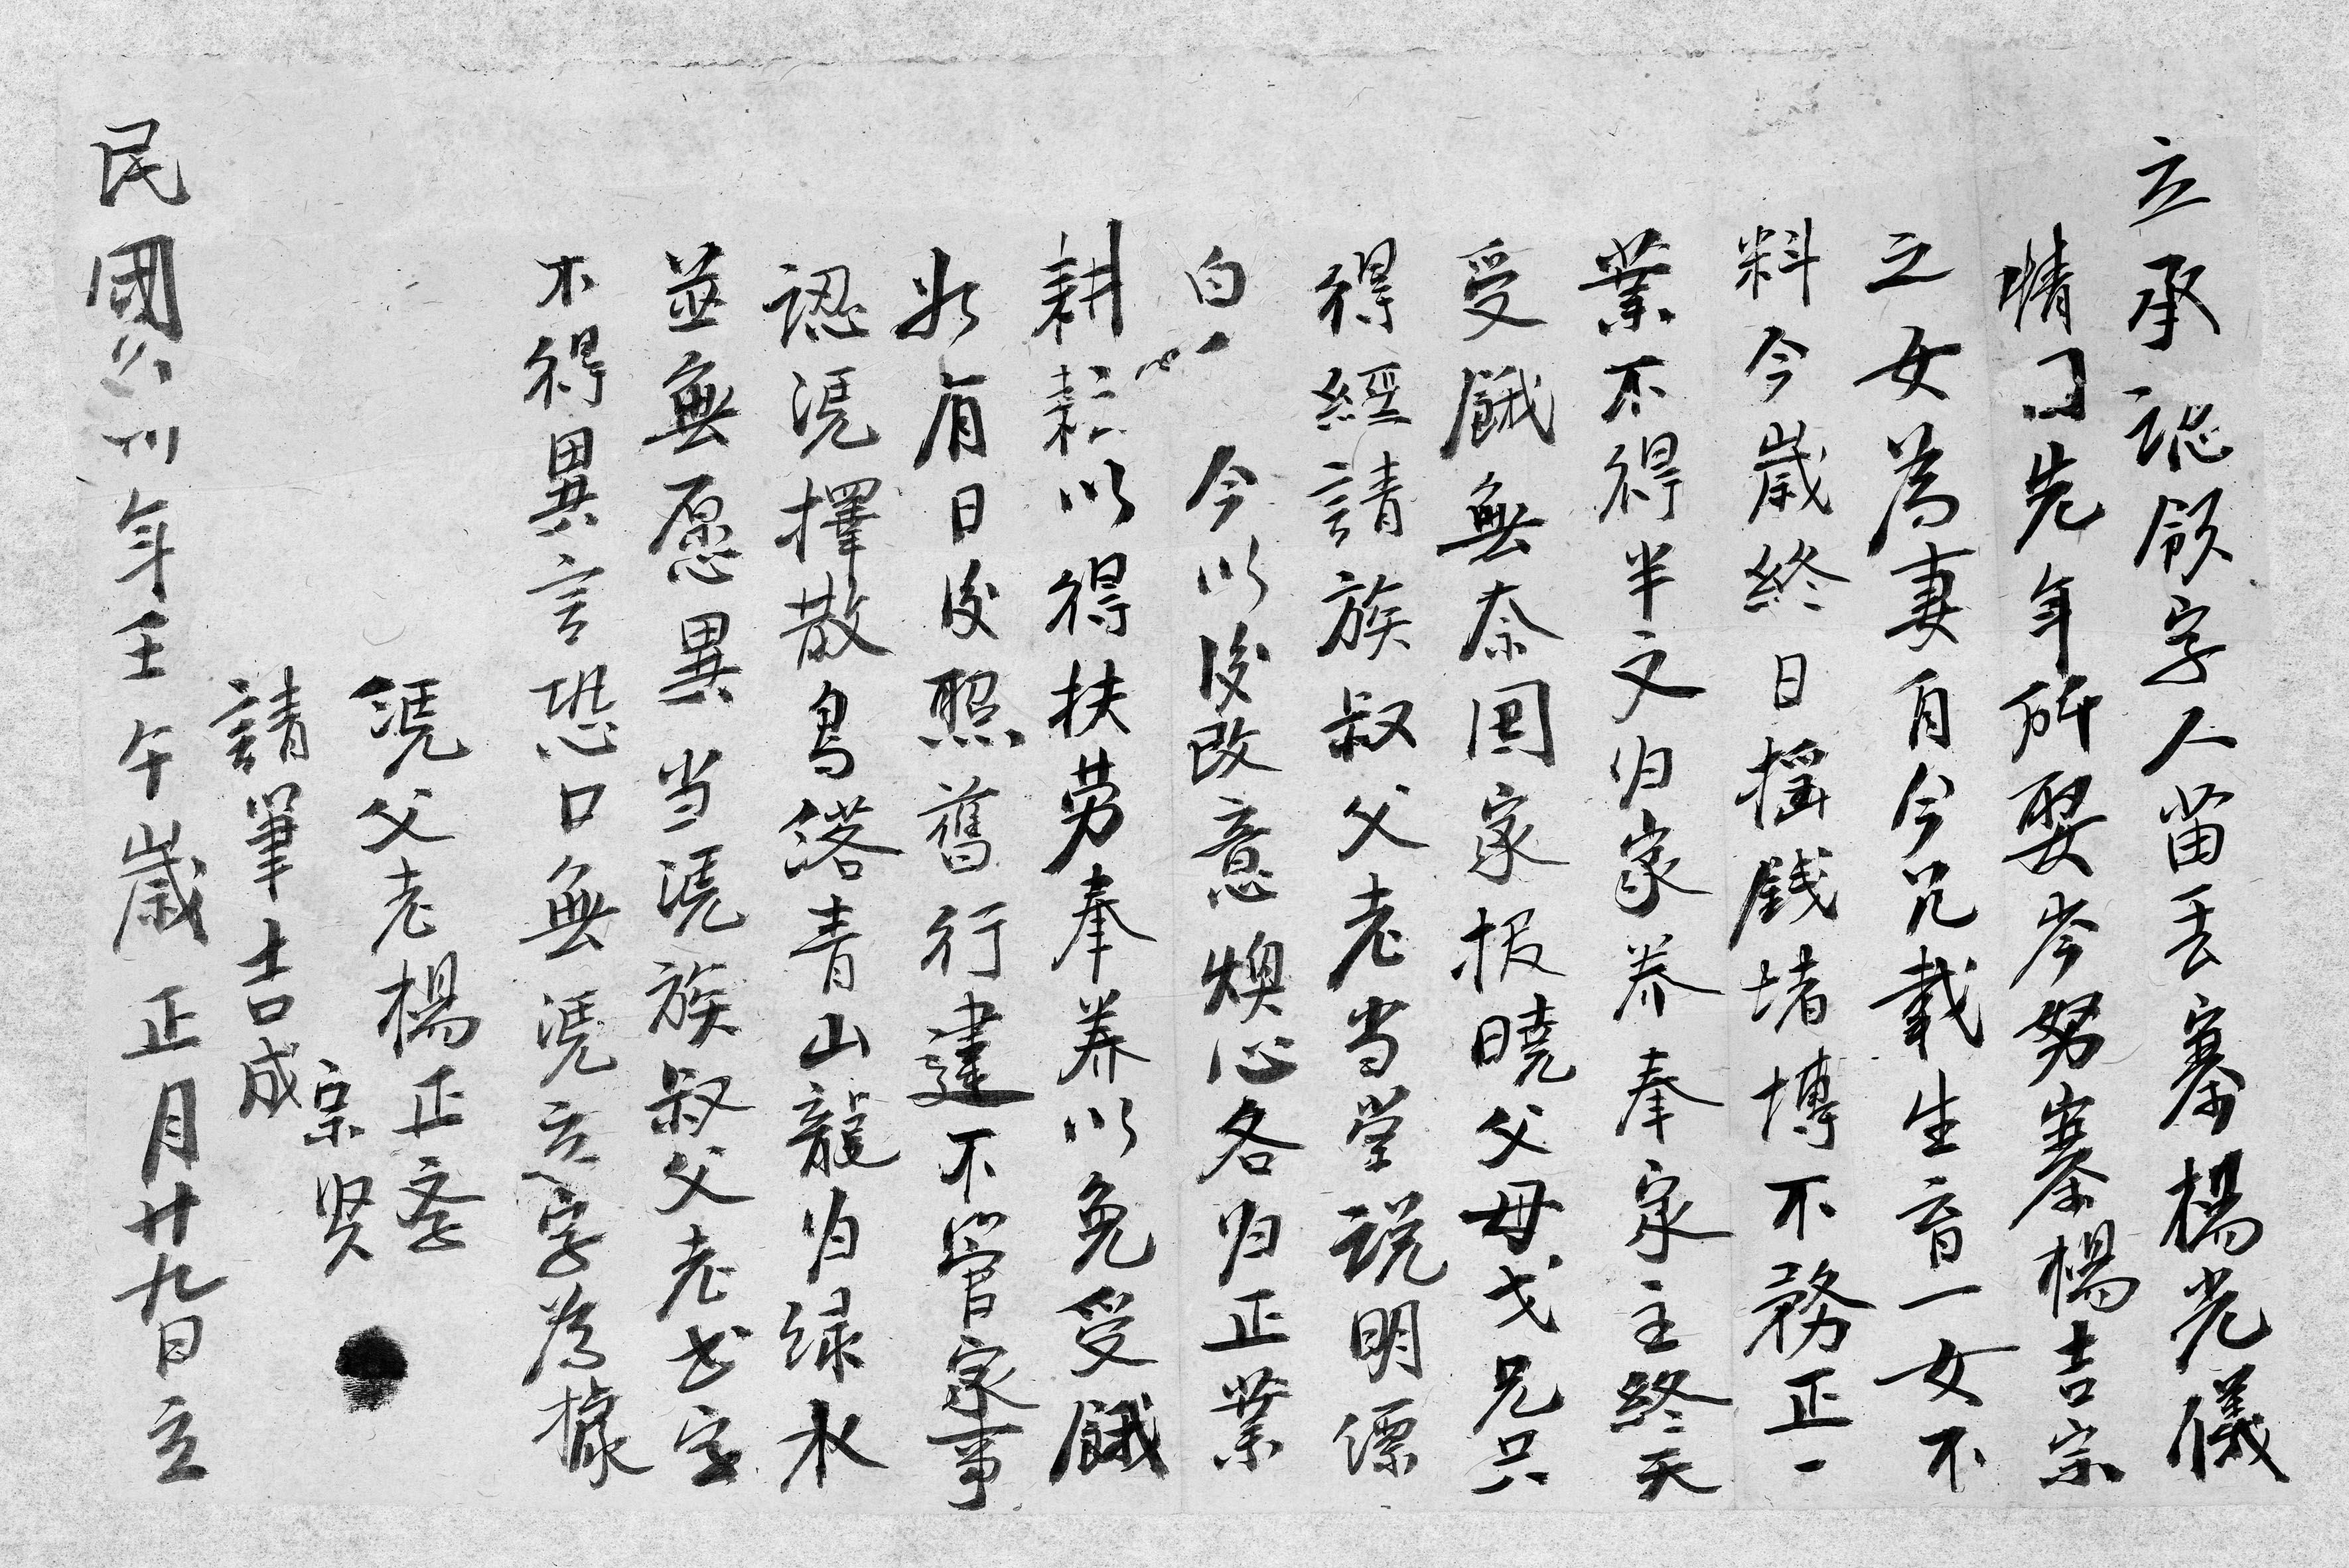 立承認領字人苗丢寨楊光儀
情因先年所娶岑努寨楊吉宗
之女為妻自今几載生育一女不
料今歲終日摇錢堵博不務正一
業不得半文归家养奉家主終天
受餓無奈回家报曉父母弌兄只
得經請族叔父老当堂説明漂
白 今以後改意煥心各归正業
耕耘以得扶劳奉养以免受餓
如有日後照舊行建不管家事
認凴擇散鳥落青山龍归緑水
並無愿異当凴族叔父老弌字
不得異言恐口無凴立字為據
凴父老楊正奎
宗贤
請筆吉成
民國卅年壬午歲正月廿九日立